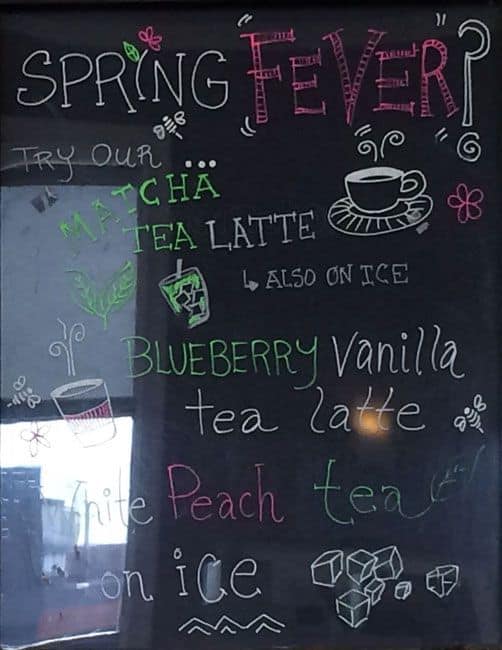 SPRING FEVER?
TRY OUR ...
MATCHA
TEA LATTE
↳ ALSO ON ICE
BLUEBERRY Vanilla
tea latte
White Peach tea
on ice